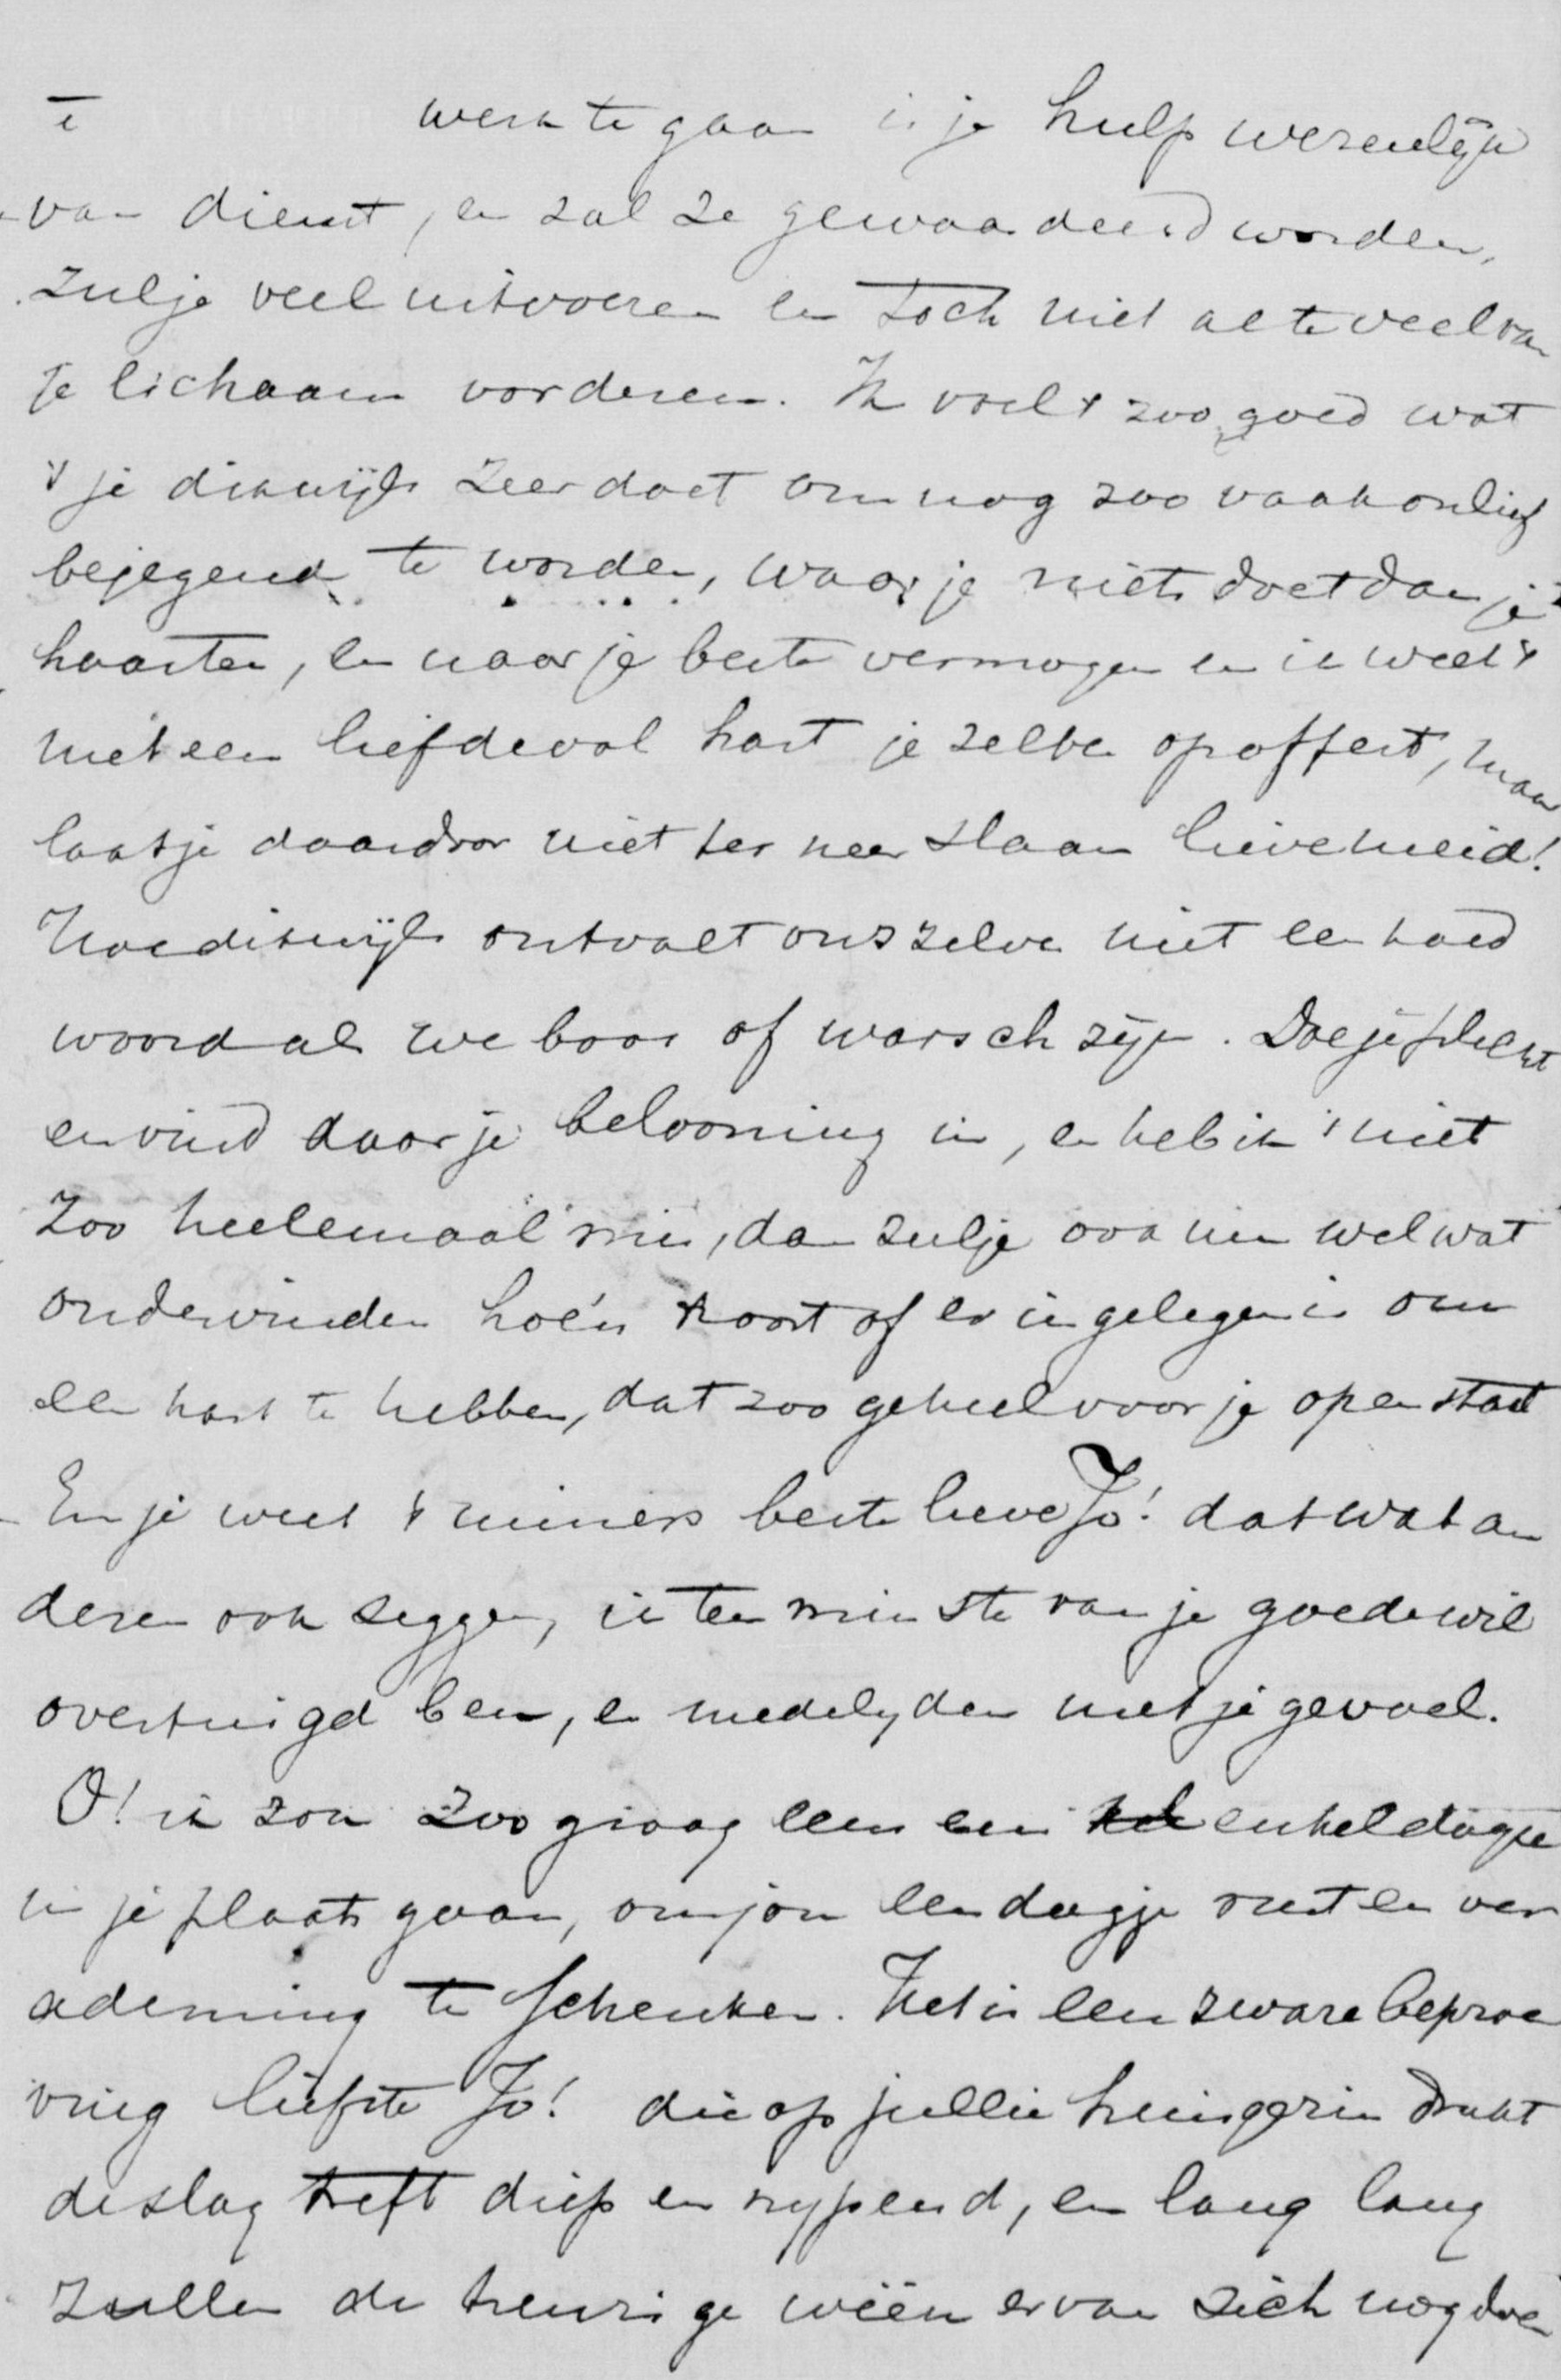 te werk te gaan is je hulp wezenlijk
van dienst, en zal ze gewaardeerd worden,
zul je veel uitvoeren en toch niet al te veel van
je lichaam vorderen. Ik voel 't zoo goed wat
't je dikwijls zeer doet om nog zoo vaak onlief
bejegend te worden, waar je niets doet dan je
haasten, en naar je beste vermogen en ik weet 't
met een liefdevol hart je zelve opoffert, maar
laat je daardoor niet ter neer slaan lieve meid!
Hoe dikwijls ontvalt ons zelve niet een hard
woord als we boos of warsch zijn. Doe je plicht
en vind daar je belooning in, en heb ik 't niet
zoo heelemaal mis, dan zul je ook nu wel wat
ondervinden hoe'n troost of er in gelegen is om
een hart te hebben, dat zoo geheel voor je open staat
En je weet 't immers beste lieve Jo! dat wat an
deren ook zeggen, ik ten minste van je goede wil
overtuigd ben, en medelyden met je gevoel.
O! ik zou zoo graag eens een enkel dagje
in je plaats gaan, om jou een dagje rust en ver
ademing te schenken. Het is een zware beproe
ving liefste Jo! die op jullie huisgezin drukt
de slag treft diep en nypend, en lang lang
zullen de treurige weeën ervan zich nog doen